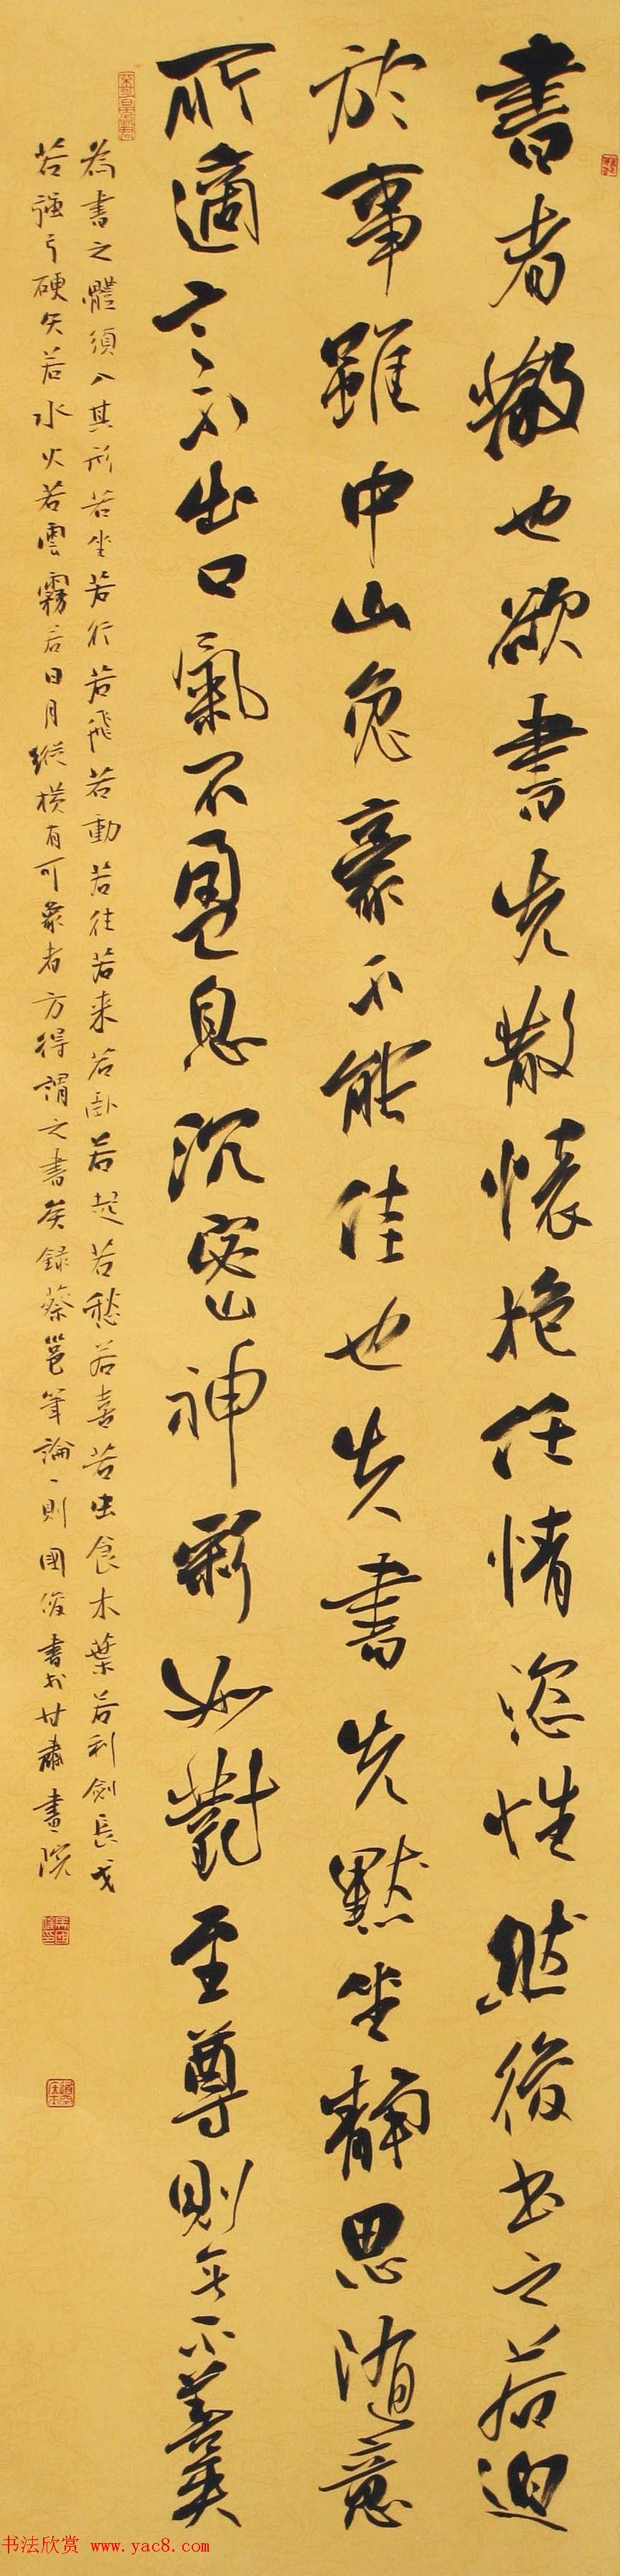 書者散也欲書先散懷抱任情恣性然後書之若迫
於事雖中山兔豪不能佳也夫書先默坐靜思隨意
所適言不出口氣不盈息沉密神彩如對至尊則無不善矣
為書之體須入其形若坐若行若飛若動若往若来若臥若起若愁若喜若虫食木葉若利劍長戈
若強弓硬矢若水火若雲霧若日月縱横有可象者方得謂之書矣録蔡邕筆論一則國俊書於甘肅畫院
书法欣赏 www.yac8.com